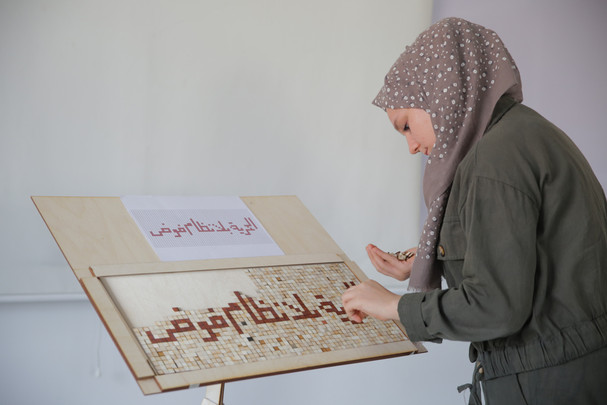 الحرية بلا نظام فوضى
بلا نظام فوضى